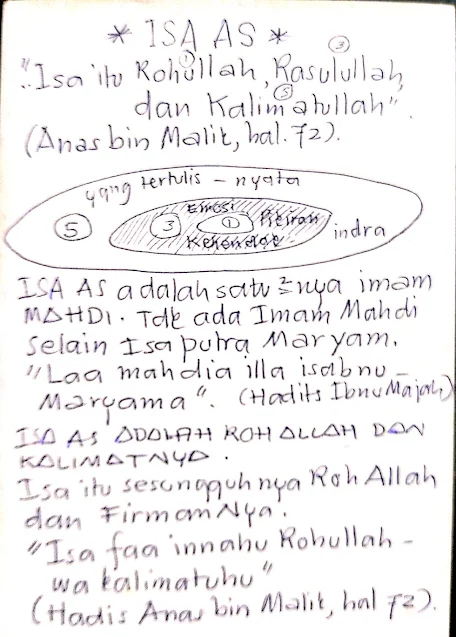 * ISA AS *
"Isa itu Rohullah, Rasulullah,
① ③
dan Kalimatullah".
⑤
(Anas bin Malik, hal. 72).
yang tertulis - nyata
Emosi
⑤ ③ ① Pikiran indra
Kehendak
ISA AS adalah satu2nya imam
MAHDI. Tdk ada Imam Mahdi
selain Isa putra Maryam.
"Laa mahdia illa isabnu -
Maryama". (Hadits Ibnu Majah)
ISA AS ADALAH ROH ALLAH DAN
KALIMATNYA.
Isa itu sesungguhnya Roh Allah
dan FirmanNya.
"Isa faa innahu Rohullah -
wa kalimatuhu"
(Hadis Anas bin Malik, hal 72).